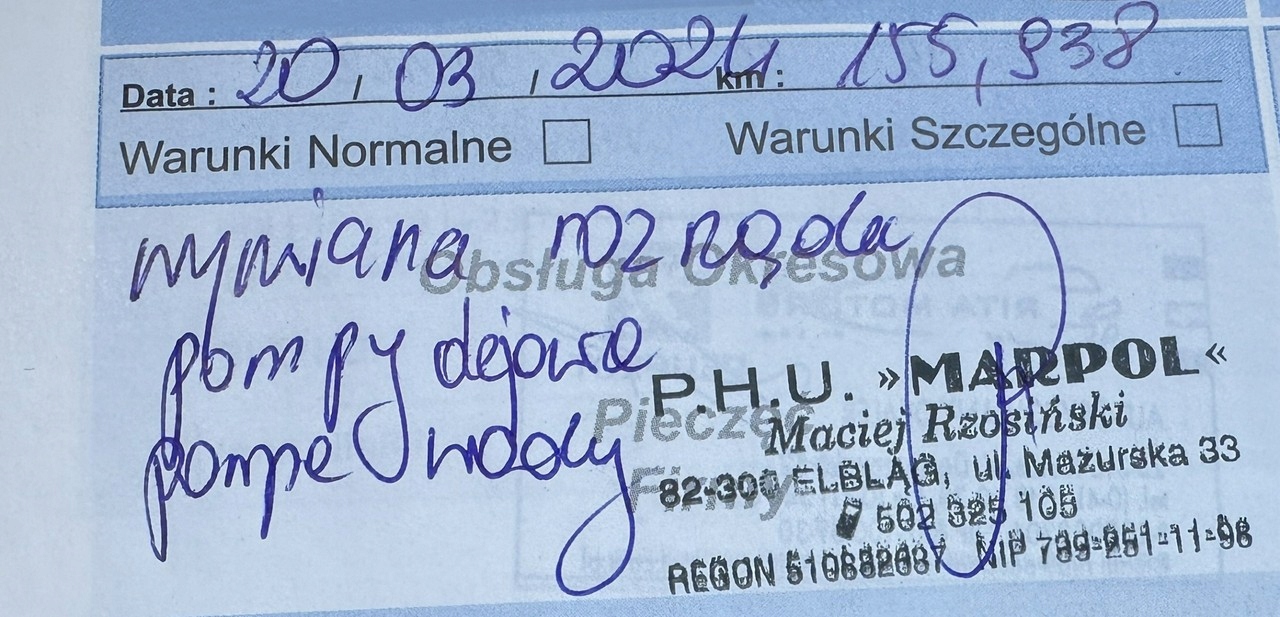 Data : 20 / 03 / 2024 km : 155,938
Warunki Normalne Warunki Szczególne
wymiana rozrządu
Obsługa Okresowa
pompy olejowe
P.H.U. »MARPOL«
Pieczęć
Maciej Rzosiński
pompe wody
Firmy
82-300 ELBLĄG, ul. Mazurska 33
502 325 105
REGON NIP